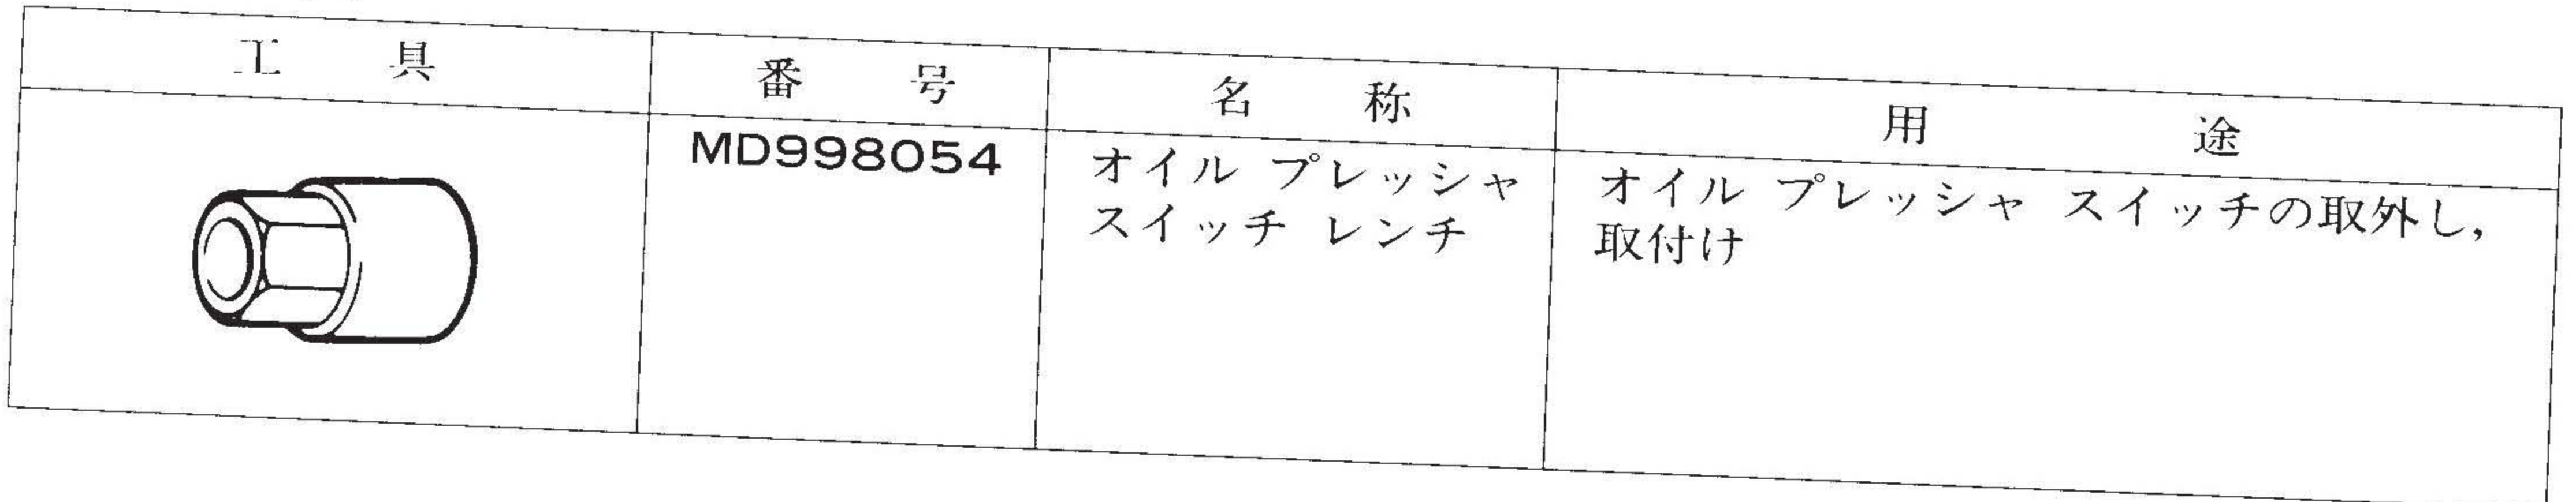 工具 番号 名称 用途
MD998054
オイル プレッシャ
スイッチ レンチ
オイル プレッシャ スイッチの取外し,
取付け